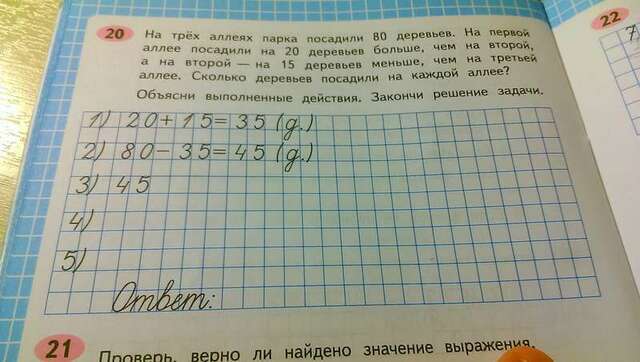 20 На трёх аллеях парка посадили 80 деревьев. На первой
аллее посадили на 20 деревьев больше, чем на второй,
а на второй — на 15 деревьев меньше, чем на третьей
аллее. Сколько деревьев посадили на каждой аллее?
Объясни выполненные действия. Закончи решение задачи.
1) 20+15=35 (д.)
2) 80-35=45 (д.)
3) 45
4)
5)
Ответ:
21 Проверь, верно ли найдено значение выражения.
22
7